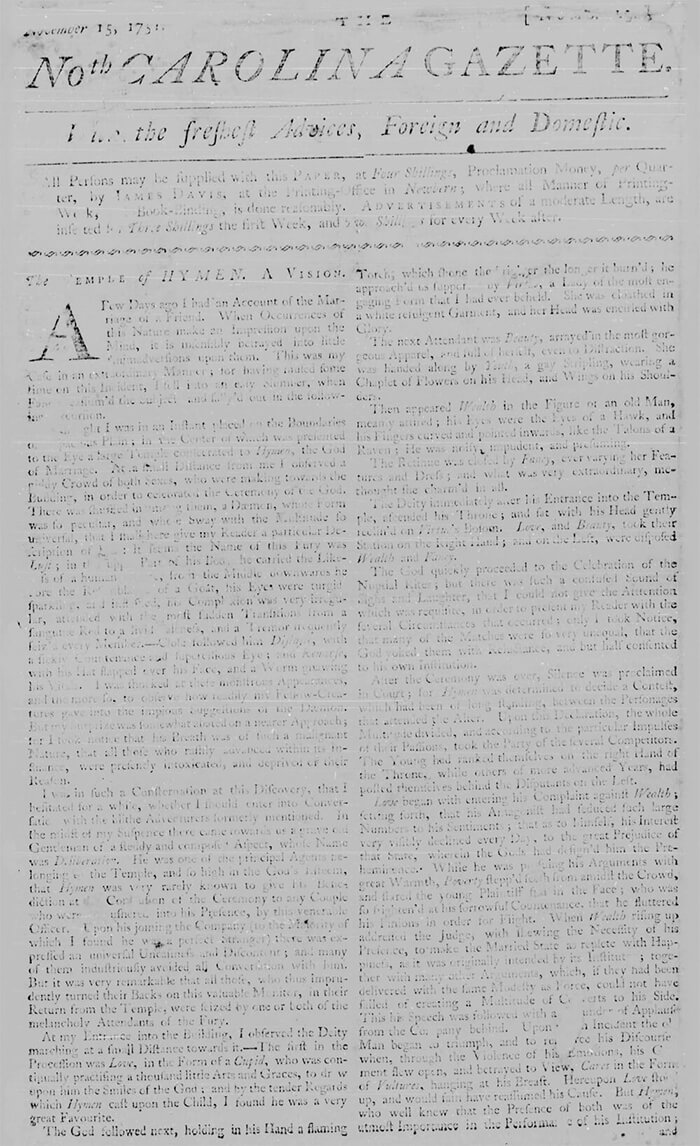 November 15, 1751.
THE
Noth CAROLINA GAZETTE.
the freshest Advices, Foreign and Domestic.
All Persons may be supplied with this PAPER, at Four Shillings, Proclamation Money, per Quar-
ter, by JAMES DAVIS, at the Printing-Office in Newbern; where all Manner of Printing-
Book-Binding, is done reasonably. ADVERTISEMENTS of a moderate Length, are
inserted for Three Shillings the first Week, and Two Shillings for every Week after.
The TEMPLE of HYMEN. A VISION.
A Few Days ago I had an Account of the Mar-
riage of a Friend. When Occurrences of
this Nature make an Impression upon the
Mind, it is insensibly betrayed into little
Animadversions upon them. This was my
Case in an extraordinary Manner; for having mused some
Time on this Incident, I fell into an easy Slumber, when
the Subject and out in the follow-
ing
I was in an Instant placed on the Boundaries
of Plain; in the Center of which was presented
to the Eye a large Temple consecrated to Hymen, the God
of Marriage. At a small Distance from me I observed a
giddy Crowd of both Sexes, who were making towards the
Building, in order to celebrate the Ceremony of the God.
There was among them, a Dæmon, whose Form
was so peculiar, and whose Sway with the Multitude so
universal, that I shall here give my Reader a particular De-
scription of It seems the Name of this Fury was
Lust; in the Part of his Body he carried the Like-
of a human from the Middle downwards he
bore the of a Goat, his Eyes were turgid
sparkling, his Complexion was very irregu-
lar, attended with the most sudden Transitions from a
sanguine Red to a livid and a Tremor frequently
seiz'd every Member.—Close followed him Disgust, with
a sickly Countenance and supercilious Eye; and Remorse,
with his Hat flapped over his Face, and a Worm gnawing
his Vitals. I was shocked at these monstrous Appearances,
and the more so, to observe how readily my Fellow-Crea-
tures gave into the impious Suggestions of the Dæmon.
But my Surprize was somewhat abated on a nearer Approach;
for I took notice that his Breath was of such a malignant
Nature, that all those who rashly advanced within its In-
fluence, were presently intoxicated, and deprived of their
Reason.
I was in such a Consternation at this Discovery, that I
hesitated for a while, whether I should enter into Conver-
sation with the blithe Adventurers formerly mentioned. In
the midst of my Suspence there came towards us a grave old
Gentleman of a steady and composed Aspect, whose Name
was Deliberation. He was one of the principal Agents be-
longing to the Temple, and so high in the God's Esteem,
that Hymen was very rarely known to give his Bene-
diction at the of the Ceremony to any Couple
who were ushered into his Presence, by this venerable
Officer. Upon his joining the Company (to the Majority of
which I found he was a perfect Stranger) there was ex-
pressed an universal Uneasiness and Discontent; and many
of them industriously avoided all Conversation with him.
But it was very remarkable that all those, who thus impru-
dently turned their Backs on this valuable Monitor, in their
Return from the Temple, were seized by one or both of the
melancholy Attendants of the Fury.
At my Entrance into the Building, I observed the Deity
marching at a small Distance towards it.—The first in the
Procession was Love, in the Form of a Cupid, who was con-
tinually practising a thousand little Arts and Graces, to draw
upon him the Smiles of the God; and by the tender Regards
which Hymen cast upon the Child, I found he was a very
great Favourite.
The God followed next, holding in his Hand a flaming
Torch, which shone the brighter the longer it burn'd; he
approach'd by Virtue, a Lady of the most en-
gaging Form that I had ever beheld. She was cloathed in
a white refulgent Garment, and her Head was encircled with
Glory.
The next Attendant was Beauty, array'd in the most gor-
geous Apparel, and full of herself, even to Distraction. She
was handed along by Youth, a gay Stripling, wearing a
Chaplet of Flowers on his Head, and Wings on his Shoul-
ders.
Then appeared Wealth in the Figure of an old Man,
meanly attired; his Eyes were the Eyes of a Hawk, and
his Fingers curved and pointed inwards, like the Talons of a
Raven; He was noisy, impudent, and presuming.
The Retinue was closed by Fancy, ever varying her Fea-
tures and Dress; and what was very extraordinary, me-
thought she charm'd in all.
The Deity immediately after his Entrance into the Tem-
ple, ascended his Throne; and sat with his Head gently
reclin'd on Virtue's Bosom. Love, and Beauty, took their
Station on the Right Hand; and on the Left, were disposed
Wealth and Fancy.
The God quickly proceeded to the Celebration of the
Nuptial Rites; but there was such a confused Sound of
Sighs and Laughter, that I could not give the Attention
which was requisite, in order to present my Reader with the
several Circumstances that occurred; only I took Notice,
that many of the Matches were so very unequal, that the
God yoked them with Reluctance, and but half consented
to his own Institution.
After the Ceremony was over, Silence was proclaimed
in Court; for Hymen was determined to decide a Contest,
which had been of long standing, between the Personages
that attended the Alter. Upon this Declaration, the whole
Multitude divided, and according to the particular Impulses
of their Passions, took the Party of the several Competitors.
The Young had ranked themselves on the right Hand of
the Throne, while others of more advanced Years, had
posted themselves behind the Disputants on the Left.
Love began with entering his Complaint against Wealth;
setting forth, that his Antagonist had seduced such large
Numbers to his Sentiments; that as to himself, his Interest
very visibly declined every Day, to the great Prejudice of
that State, wherein the Gods had design'd him the Pre-
heminence. While he was pursuing his Arguments with
great Warmth, Poverty stepp'd forth from amidst the Crowd,
and stared the young Plaintiff full in the Face; who was
so frighten'd at his sorrowful Countenance, that he fluttered
his Pinions in order for Flight. When Wealth rising up
addressed the Judge, with shewing the Necessity of his
Presence, to make the Married State as replete with Hap-
piness, as it was originally intended by its Institution; toge-
ther with many other Arguments, which, if they had been
delivered with the same Modesty as Force, could not have
failed of creating a Multitude of Converts to his Side.
This his Speech was followed with a of Applause
from the Company behind. Upon Incident the
Man began to triumph, and to his Discourse
when, through the Violence of his Emotions, his
ment flew open, and betrayed to View, Cares in the Form
of Vultures, hanging at his Breast. Hereupon Love
up, and would fain have reassumed his Cause. But Hymen,
who well knew that the Presence of both was of the
utmost Importance in the Performance of his Institution;
and